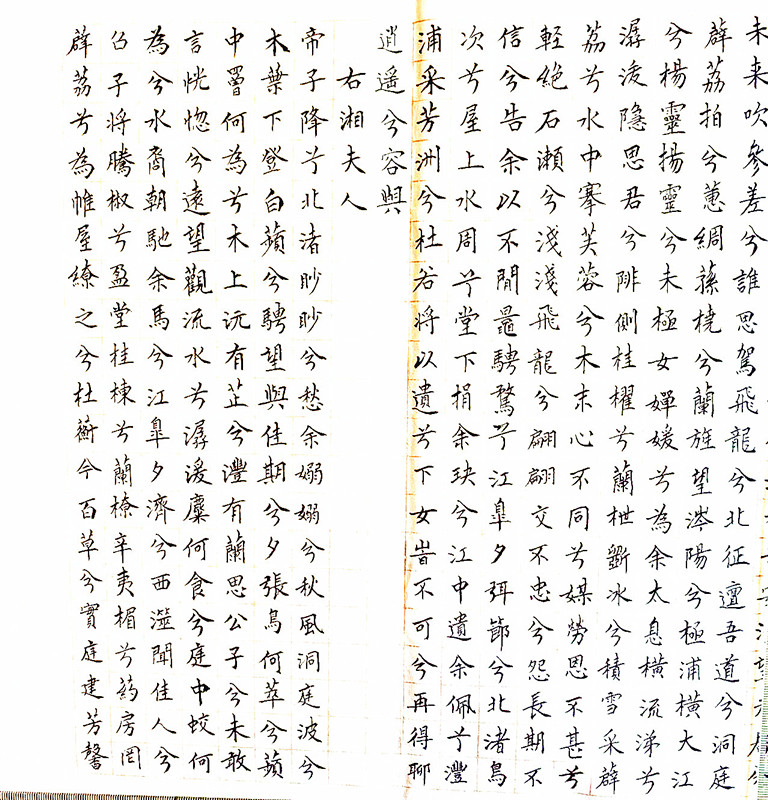 未来吹參差兮誰思駕飛龍兮北征邅吾道兮洞庭
薜荔拍兮蕙綢蓀橈兮蘭旌望涔陽兮極浦橫大江
兮楊靈揚靈兮未極女嬋媛兮為余太息橫流涕兮
潺湲隱思君兮陫側桂櫂兮蘭枻斵冰兮積雪采薜
荔兮水中搴芙蓉兮木末心不同兮媒勞思不甚兮
輕絕石瀨兮淺淺飛龍兮翩翩交不忠兮怨長期不
信兮告余以不閒鼂騁騖兮江皐夕弭節兮北渚鳥
次兮屋上水周兮堂下捐余玦兮江中遺余佩兮灃
浦采芳洲兮杜若將以遺兮下女旹不可兮再得聊
逍遥兮容與
右湘夫人
帝子降兮北渚眇眇兮愁余嫋嫋兮秋風洞庭波兮
木葉下登白蘋兮騁望與佳期兮夕張鳥何萃兮蘋
中罾何為兮木上沅有芷兮灃有蘭思公子兮未敢
言恍惚兮遠望觀流水兮潺湲麋何食兮庭中蛟何
為兮水裔朝馳余馬兮江皐夕濟兮西澨聞佳人兮
召子將騰椒兮盈堂桂棟兮蘭橑辛夷楣兮葯房罔
薜荔兮為帷屋繚之兮杜蘅今百草兮實庭建芳馨